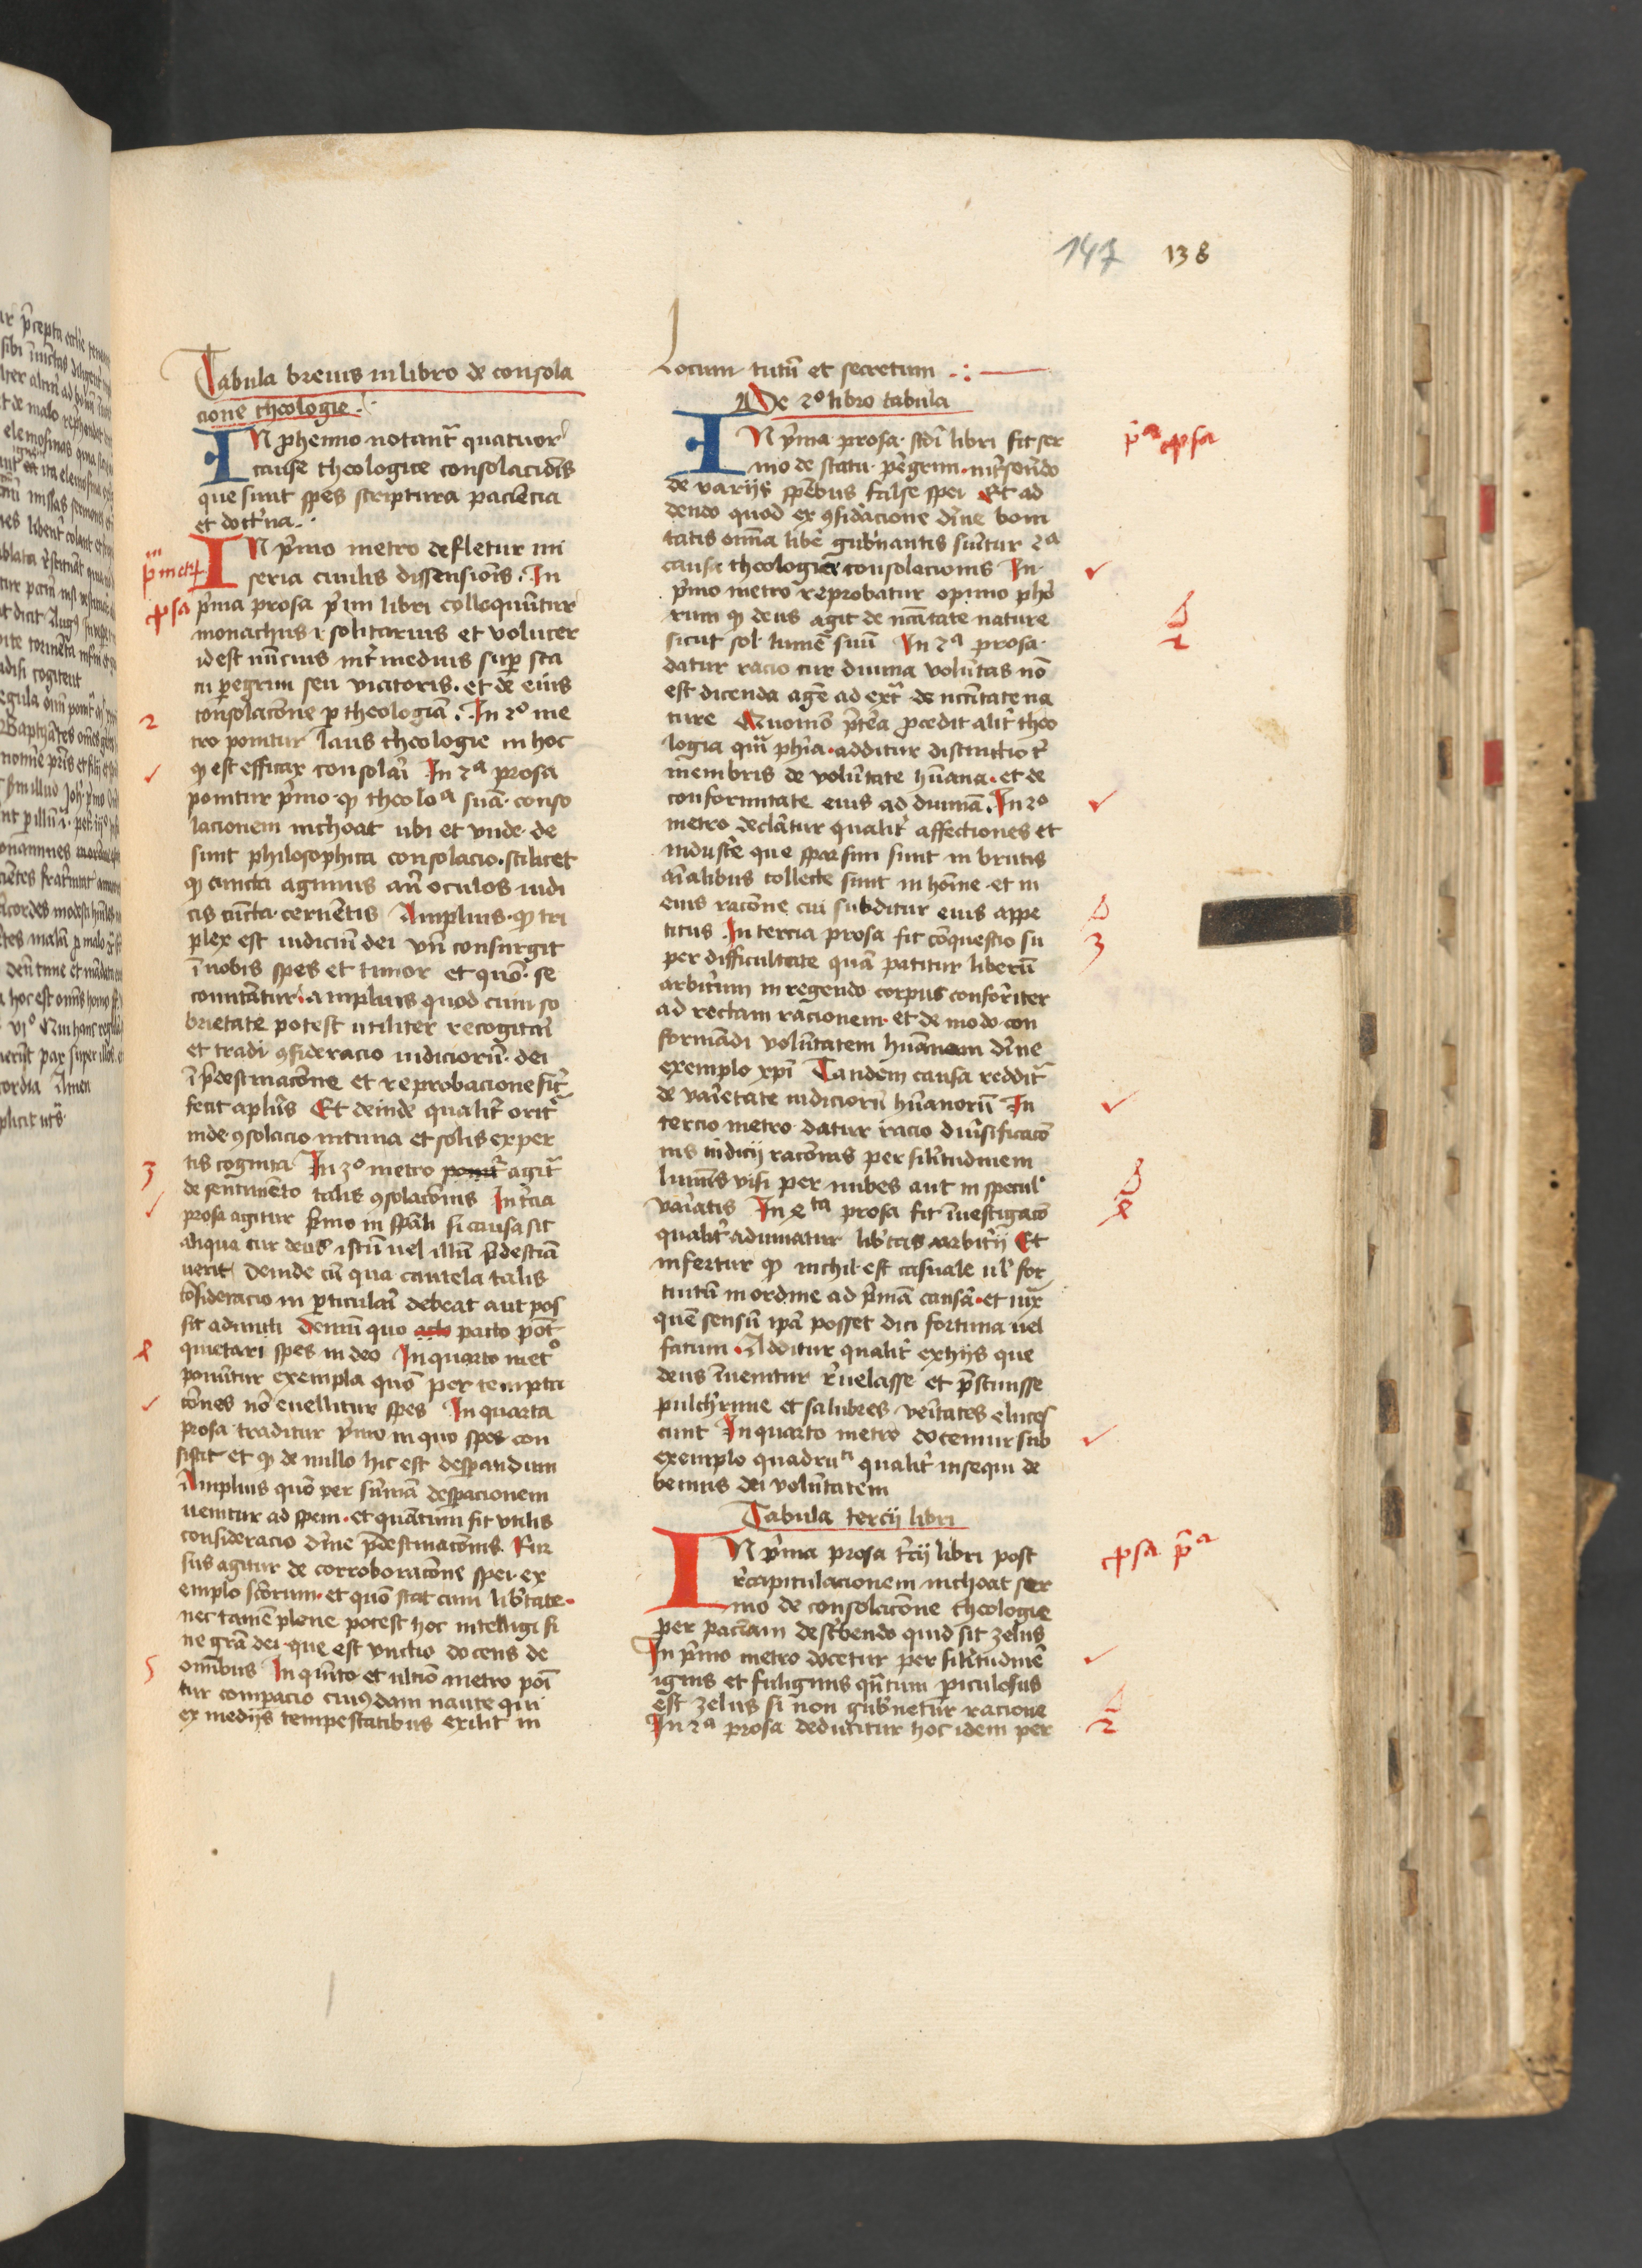 147 138
Tabula brevis in libro de consola
cione theologie.
IN prhemio notant᷑ quatuor
cause theologice consolaciōis
que sunt spes scriptura paciēcia
et doctͥna
IN pͥmo metro defletur mi
seria civilis dissensionis. In
pͥma prosa pͥmi libri colloquūtur
monachus ⁊ solitarius et volucer
idest nūcius int̉medius sup̱ sta
tu pe̱grini seu viatoris. et de eius
consolacōne ꝑ theologiā. In 2º me
tro ponitur laus theologie in hoc
ꝙ est efficax consolari In 2ª prosa
ponitur pͥmo ꝙ theoloª suā conso
lacionem inchoat ubi et vnde de
sunt philosophica consolacio. scilicet
ꝙ cuncta agimus an̄ oculos iudi
cis cūcta cernētis Amplius ꝙ tri
plex est iudiciū dei vn̄ consurgit
ī nobis spes et timor et quō se
comitātur. amplius quod cum so
brietate potest utiliter recogitari
et tradi ꝯsideracio iudiciorū dei
ī p̄destinacōne et reprobacione sic̄
fecit aplūs Et deinde qualit̉ orit᷑
inde ꝯsolacio intima et solis exper
tis cognita In 3º metro ponit᷑ agit᷑
de sentimēto talis ꝯsolacōnis In t̉cia
prosa agitur pͥmo in sp̄ali si causa sit
aliqua cur deus istū uel illū p̄destīa
uerit Deinde cū qua cautela talis
cōsideracio in ꝑticulari debeat aut pos
sit admitti Demū quo acto pacto pōt
quietari spes in deo In quarto metº
ponūtur exempla quō per tempta
cōnes nō euellitur spes In quarta
prosa traditur pͥmo in quo spes con
sistit et ꝙ de nullo hic est despandum
Amplius quō per sūmā despacionem
uenitur ad spem. et quātum sit vtilis
consideracio diuīe p̄destinacōnis. Rur
sus agitur de corroboracōne spei ex
emplo sc̄orum. et quō stat cum lib̉tate
nec tamē plene potest hoc intelligi si
ne gr̄a dei que est vnctio docens de
omnibus In qu̇nto et ultiō metro poī
tur comp̱acio cuiꝰdam naute qui
ex medijs tempestatibus exilit in
pͫ metꝝ
ꝓsa
2
3
4
5
Locum tutū et secretum
De 2º libro tabula
IN pͥma prosa scdī libri fit ser
mo de statu pe̱grini. int̉serēdo
de varijs sp̄ebus false spei Et ad
dendo quod ex ꝯfidacione diīne boni
tatis omīa libe̱ gub̉nantis sum̄tur 2ª
causa theologice consolacionis In
pͥmo metro reprobatur opinio phō
rum ꝙ deus agit de nc̄itate nature
sicut sol lumē suū In 2ª prosa
datur racio cur diuina volūtas nō
est dicenda age̱ ad ext̃ de nccītate na
ture Quomō p̄tea ꝓcedit alit̉ theo
logia qm̄ phīa. additur distinctio t̉
membris de volūtate hūana. et de
conformitate eius ad diuinā. In 2º
metro declāatur qualit̉ affectiones et
induste̱ que sparsim sunt in brutis
aīalibus collecte sunt in hōine et in
eius racōne cui subditur eius appe
titus. In tercia prosa fit cōquestio su
per difficultate quā patitur liberū
arbitͥum in regendo corpus conformiter
ad rectam racionem. et de modo con
formādi volūtatem hūanam diīne
exemplo xp̄i Tandem causa reddit᷑
de vaͥetate iudiciorū hūanorū In
tercio metro datur racio diu̓sificacō
nis iudicij racōnis per silitudinem
luminis visi per nubes aut in specul̓
vaͥatis In 4ta prosa fit īuestigacō
qualit̉ adiuuatur lib̉tas arbitͥj Et
infertur ꝙ nichil est casuale ul̓ for
tuitū in ordine ad pͥmā causā. et iux̃
quē sensū ip̄a posset dici fortuna uel
fatum. Additur qualit̉ ex hijs que
deus īuenitur ru̓elasse et p̄sciuisse
pulcherime et salubres ueͥtates eluces
cunt In quarto metro docemur sub
exemplo quadruti qualit̉ insequi de
bemus dei volūtatem
Tabula tercij libri
IN pͥma prosa t̉cij libri post
rͤcapitulacionem inchoat ser
mo de consolacōne theologie
per paciam desc̓bendo quid sit zelus
In pͥmo metro docetur per silitudinē
ignis et fuliginis qn̄tum ꝑiculosus
est zelus si non gub̉netur racione
In 2ª prosa deducitur hoc idem per
pͥª ꝓsa
2
3
4
ꝓsa pͥª
2